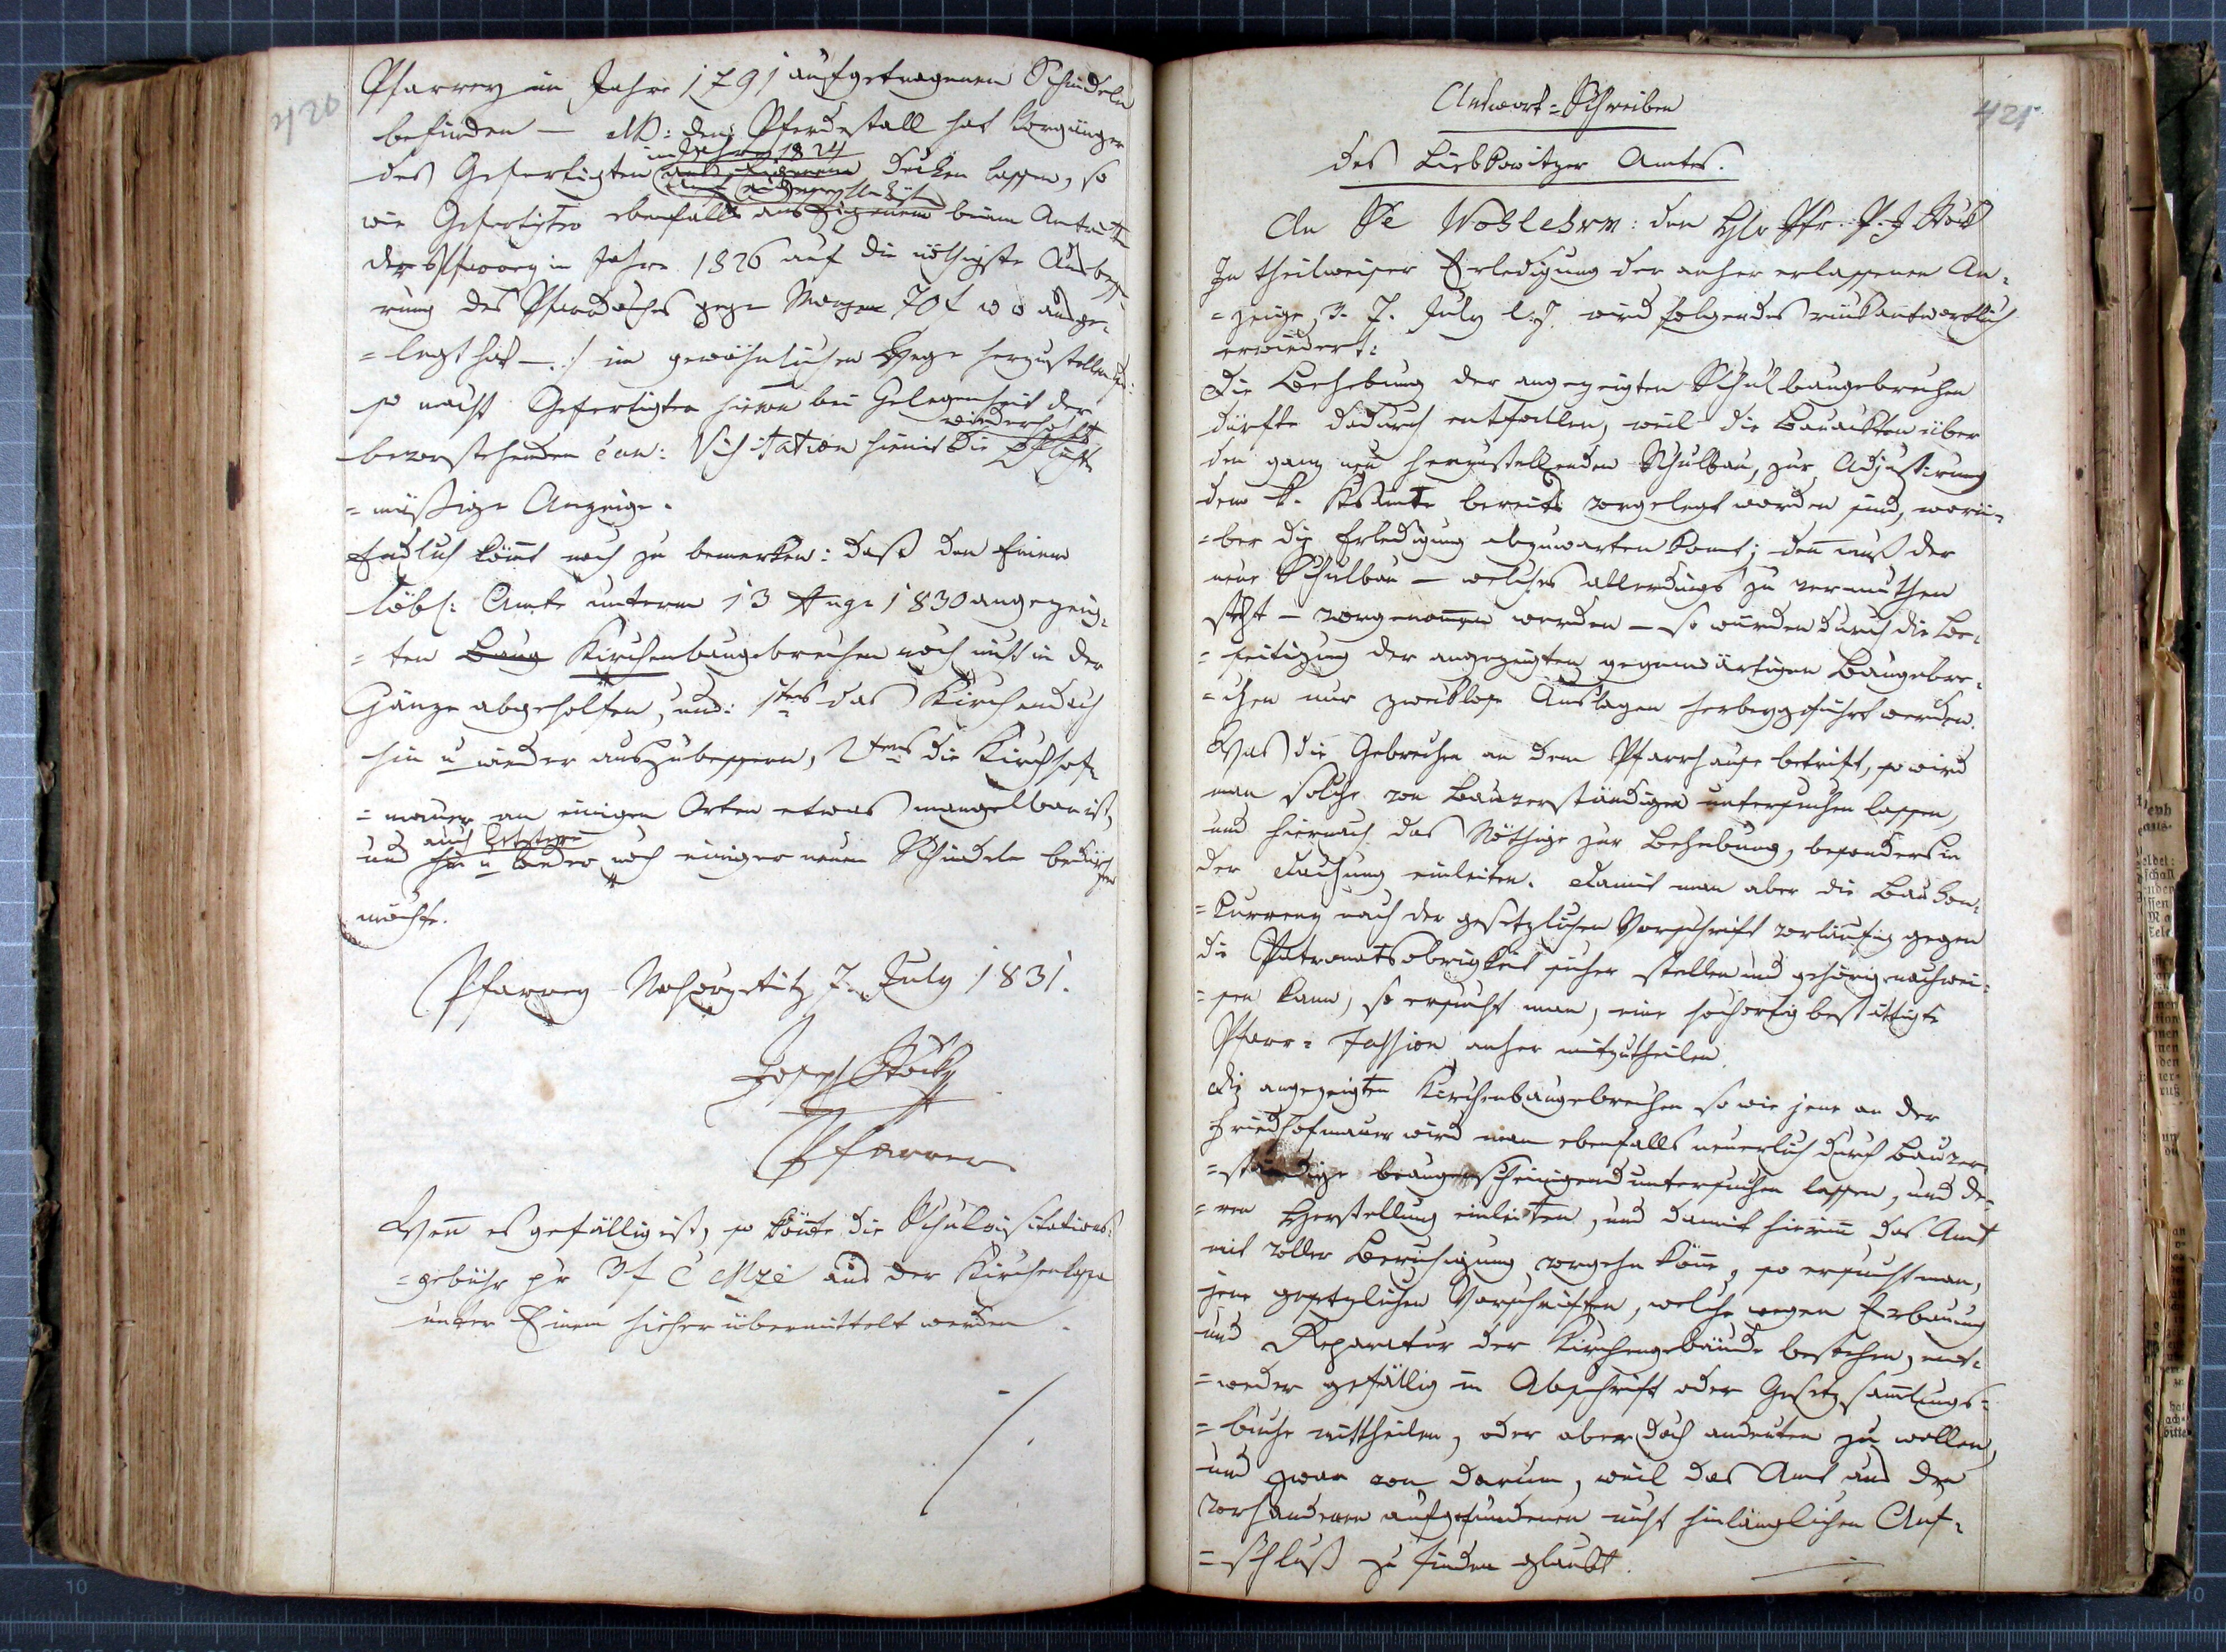 420
Pfarrey im Jahre 1791 aufgetragenen Schindeln
befinden — NB: den Pferdestall hat Vorgänger
im Jahre 1824
des Gefertigten aus Eigenem decken lassen, so
auf eigene Unkosten
wie Gefertigter ebenfalls aus Eigenem beim Antritte
der Pfarrey im Jahre 1826 auf die nöthigste Ausbesse
rung des Pfardaches gegen 70 f W W ausge¬
= legt hat — :/ im gewöhnlichen Wege herzustellen
so macht Gefertigter hievon bei Gelegenheit der
wiederholt
bevorstehenden can: Visitation hiemit die pflicht
= mäßige Anzeige.
Endlich kömt noch zu bemerken: daß den Einem
löbl: Amte unterm 13 Aug. 1830 angezeig¬
= ten Baug Kirchenbaugebrechen noch nicht in der
Gänze abgeholfen, und: 1tens das Kirchendach
hin u wieder auszubessern, 2tens die Kirchhof¬
= mauer an einigen Orten etwas mangelbar ist,
auch letztere
und hin u wieder noch einiger neuen Schindeln bedürfen
möchte.
Pfarrey 7. July 1831.
Joseph Stöcky
Pfarrer
Wenn es gefällig ist, so könnte die Schulvisitations¬
= gebühr pr 3 f C Mze aus der Kirchenkassa
unter Einem hieher übermittelt werden.
421
Antwort = Schreiben
des Liebkowitzer Amtes.
An Se Wohlehrw: den H Pfr. P. J Stöck
In theilweiser Erledigung der anher erlassenen An¬
= zeige 7. July l. J. wird folgendes rückantwortlich
erwiedert:
Die Behebung der angezeigten Schulbaugebrechen
dürfte dadurch entfallen, weil die Bauackten über
den ganz neu herzustellenden Schulbau, zur Adjustirung
dem k. Ksamte bereits vorgelegt worden sind, worü¬
= ber die Erledigung abzuwarten komt; den muß der
neue Schulbau — welches allerdings zu vermuthen
steht — vorgenomen werden — so würden durch die Be¬
= seitigung der angezeigten gegenwärtigen Baugebre¬
= chen nur zwecklose Auslagen herbeygeführt werden.
Was die Gebrechen an dem Pfarrhause betrift, so wird
man solche von Bauverständigen untersuchen lassen,
und hiernach das Nöthige zur Behebung, besonders in
der Dachung einleiten. Damit man aber die Baukon¬
= kurrenz nach der gesetzlichen Vorschrift vorläufig gegen
die Patronatsobrigkeit sicher stellen und gehörig nachwei¬
= sen kann, so ersucht man, eine hochortig bestättigte
Pfarr = Fassion anher mitzutheilen.
Die angezeigten Kirchenbaugebrechen so wie jene an der
Friedhofmauer wird man ebenfalls neuerlich durch Bauver
= ständige beaugenscheinigend untersuchen lassen, und de¬
= ren Herstellung einleiten, und damit hierinn das Amt
mit voller Beruhigung vorgehn könne, so ersucht man,
jene gesetzlichen Vorschriften, welche wegen Erbauung
und Reparatur der Kirchengebäude bestehen, ent¬
= weder gefällig in Abschrift oder Gesetzsamlungs=
= buche mittheilen, oder aber doch andeuten zu wollen,
und zwar von darum, weil das Amt aus den
vorhandenen aufgefundenen nicht hinlänglichen Auf¬
= schluß zu finden glaubt.